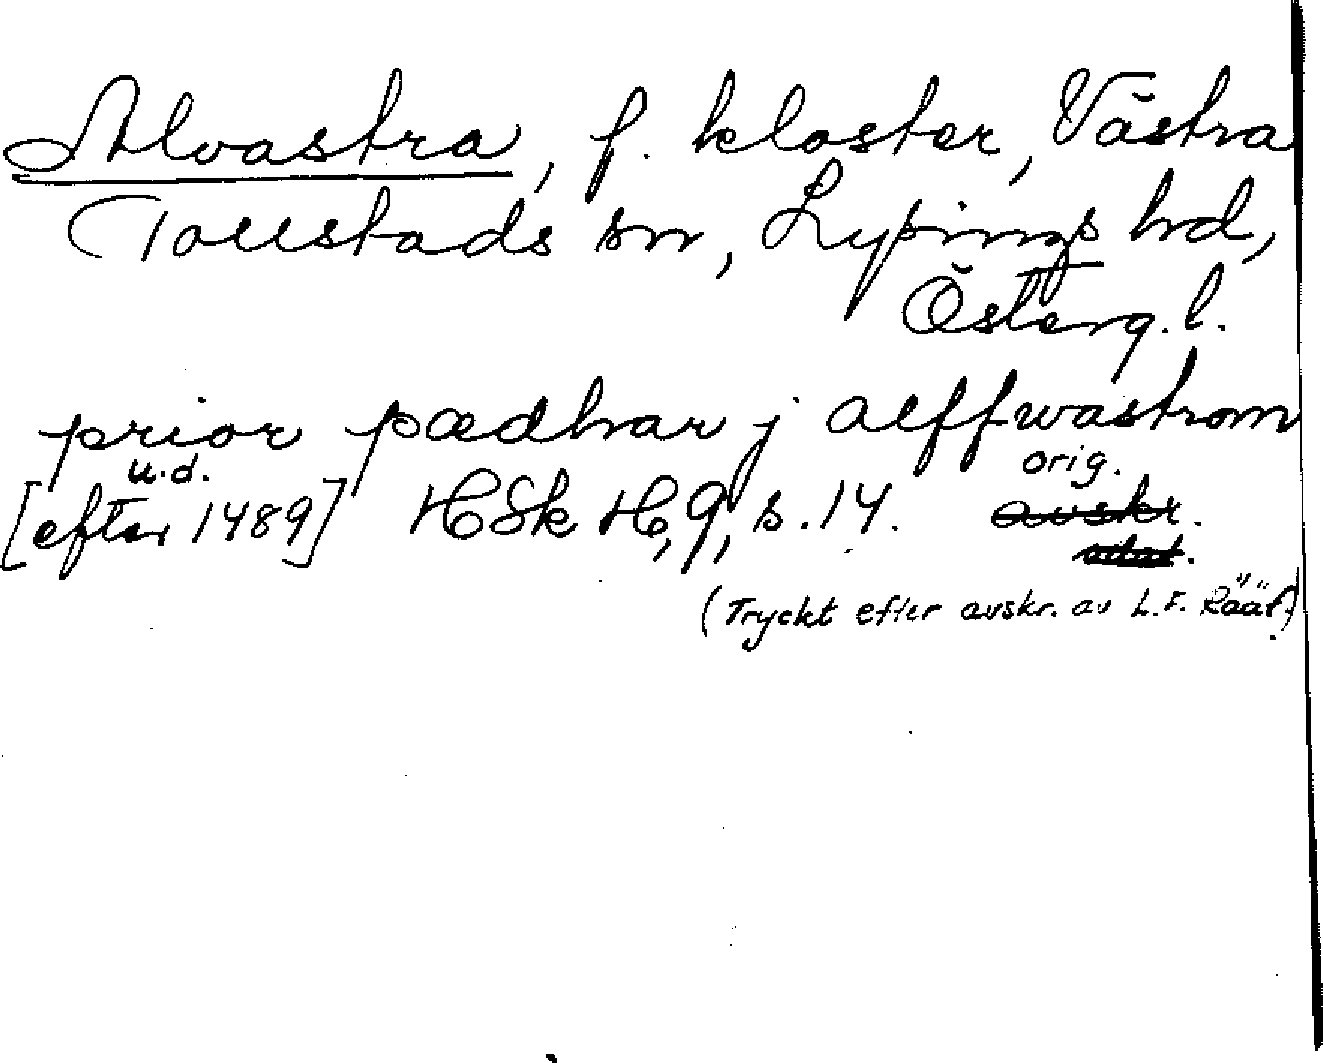 Alvastra, f. kloster, Västra
Tollstads sn, Lysings hd,
Österg. l.
prior pædhar j alffwastrom
u.d. orig.
[efter 1489] HSk H, 9, s. 14. avskr.
(Tryckt efter avskr. av L.F. Rääf.)